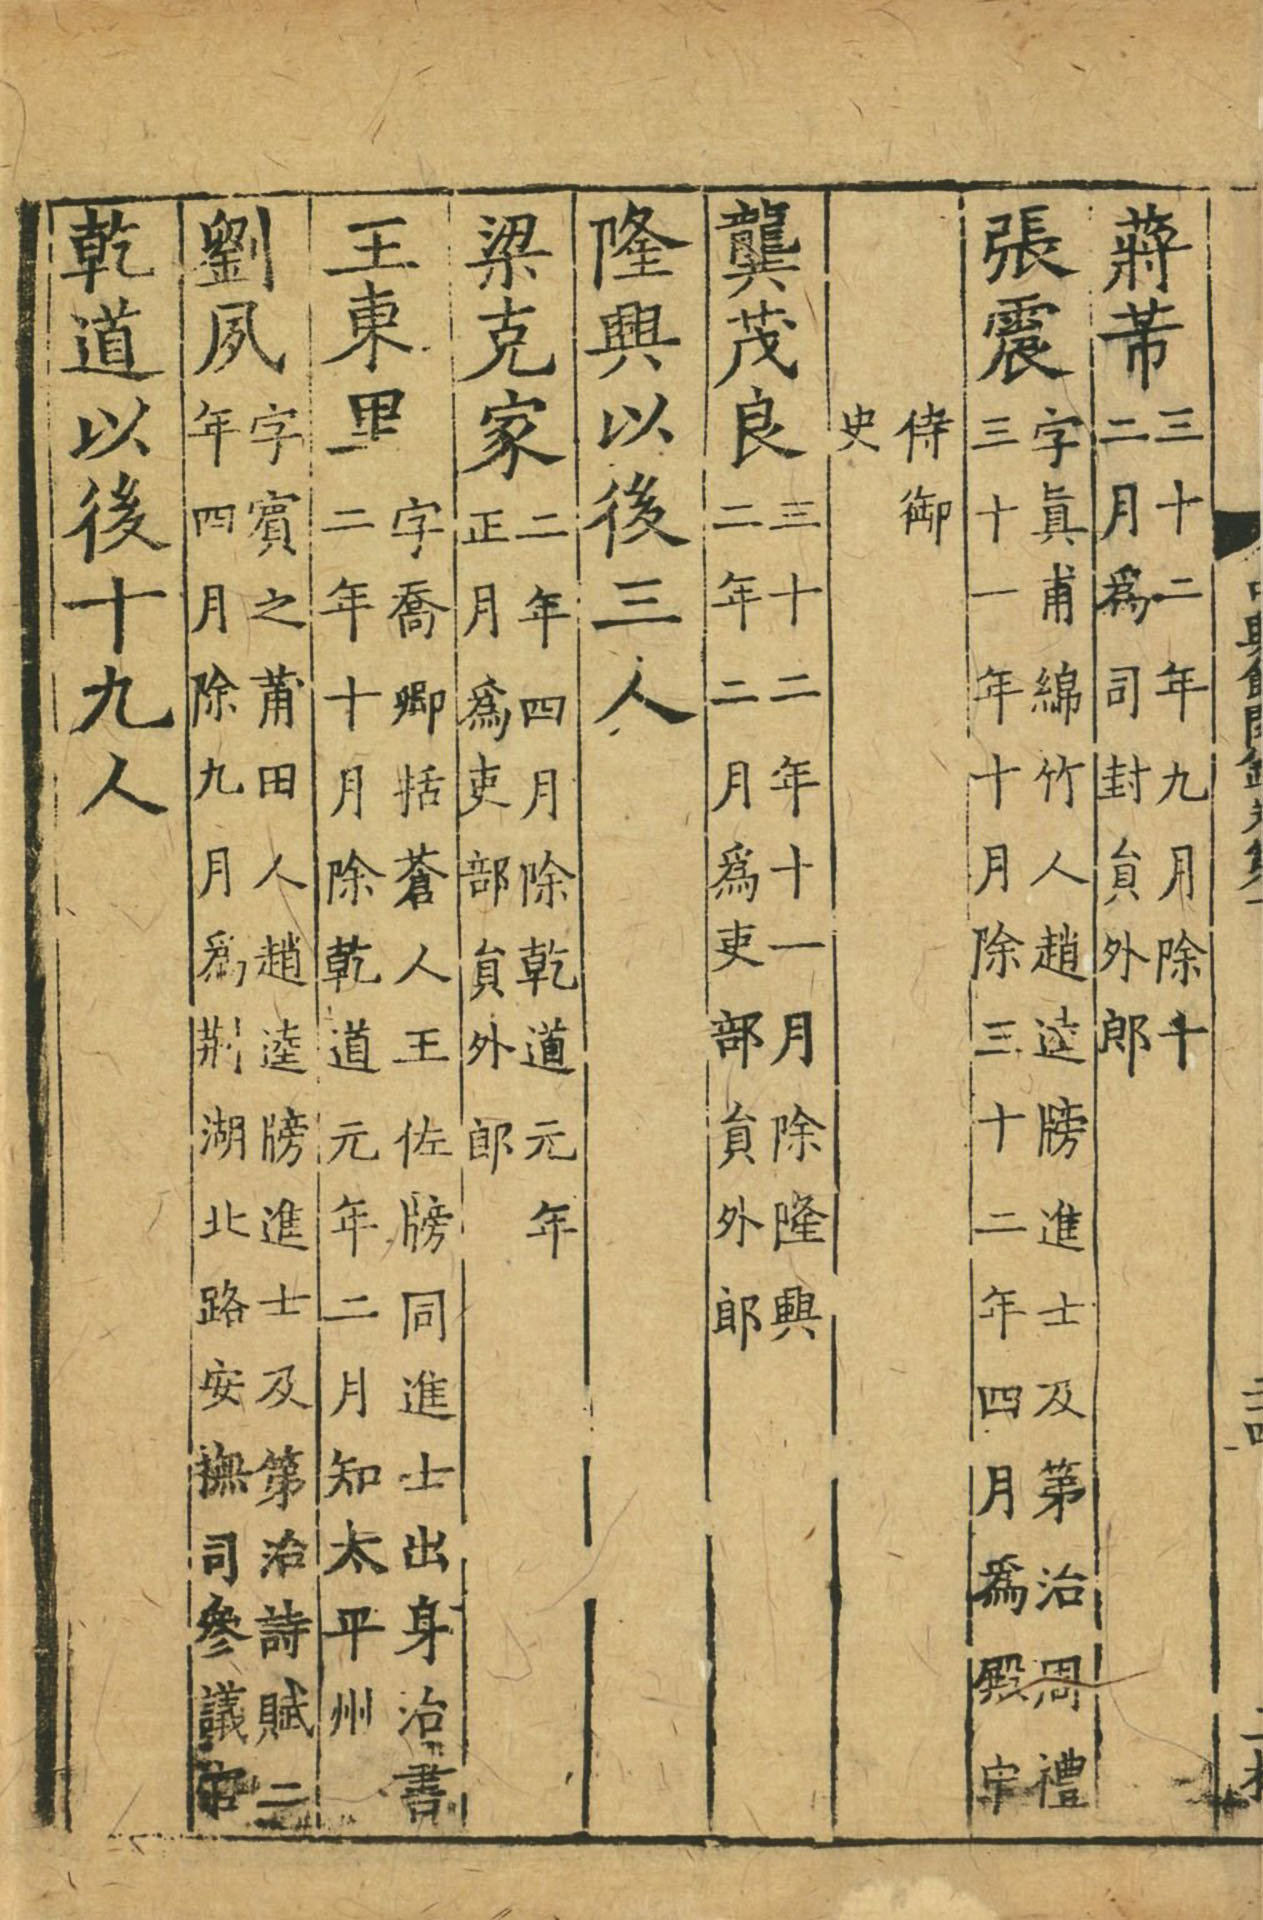 蔣芾三十二年九月除十
二月爲司封貟外郎
張震字眞甫綿竹人趙逵牓進士及第治周禮
三十一年十月除三十二年四月爲殿中
侍御
史
龔茂良三十二年十一月除隆興
二年二月爲吏部貟外郎
隆興以後三人
梁克家二年四月除乾道元年
正月爲吏部貟外郎
王東里字喬卿括蒼人王佐牓同進士出身治書
二年十月除乾道元年二月知太平州
劉夙字賓之莆田人趙逵牓進士及第治詩賦二
年四月除九月爲荆湖北路安撫司參議官
乾道以後十九人